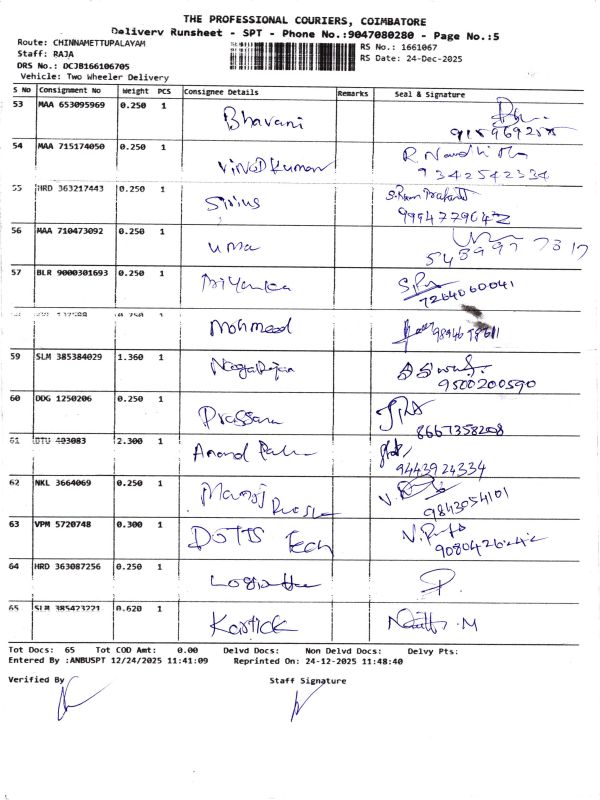 THE PROFESSIONAL COURIERS, COIMBATORE
Delivery Runsheet - SPT - Phone No.:9047080280 - Page No.:5
Route: CHINNAMETTUPALAYAM
RS No.: 1661067
Staff: RAJA
RS Date: 24-Dec-2025
DRS No.: DCJB166106705
Vehicle: Two Wheeler Delivery
S No Consignment No Weight PCS Consignee Details Remarks Seal & Signature
53 MAA 653095969 0.250 1 Bhavani
54 MAA 715174050 0.250 1 Vinod Kumar
9342542334
55 HRD 363217443 0.250 1 Sirius
56 MAA 710473092 0.250 1 uma
57 BLR 9000301693 0.250 1 Priyanka
7264060041
0.250 1 Mohmeed
59 SLM 385384029 1.360 1 Nagarajan
9500200590
60 DDG 1250206 0.250 1 Prassana
8667358208
61 DTU 403083 2.300 1 Anand
9443924334
62 NKL 3664069 0.250 1 Manoj
9843054101
63 VPM 5720748 0.300 1 DOTTS Tech
64 HRD 363087256 0.250 1
P.
65 SLM 385423221 0.620 1 Kartick
Tot Docs: 65 Tot COD Amt: 0.00 Delvd Docs: Non Delvd Docs: Delvy Pts:
Entered By :ANBUSPT 12/24/2025 11:41:09 Reprinted On: 24-12-2025 11:48:40
Verified By Staff Signature